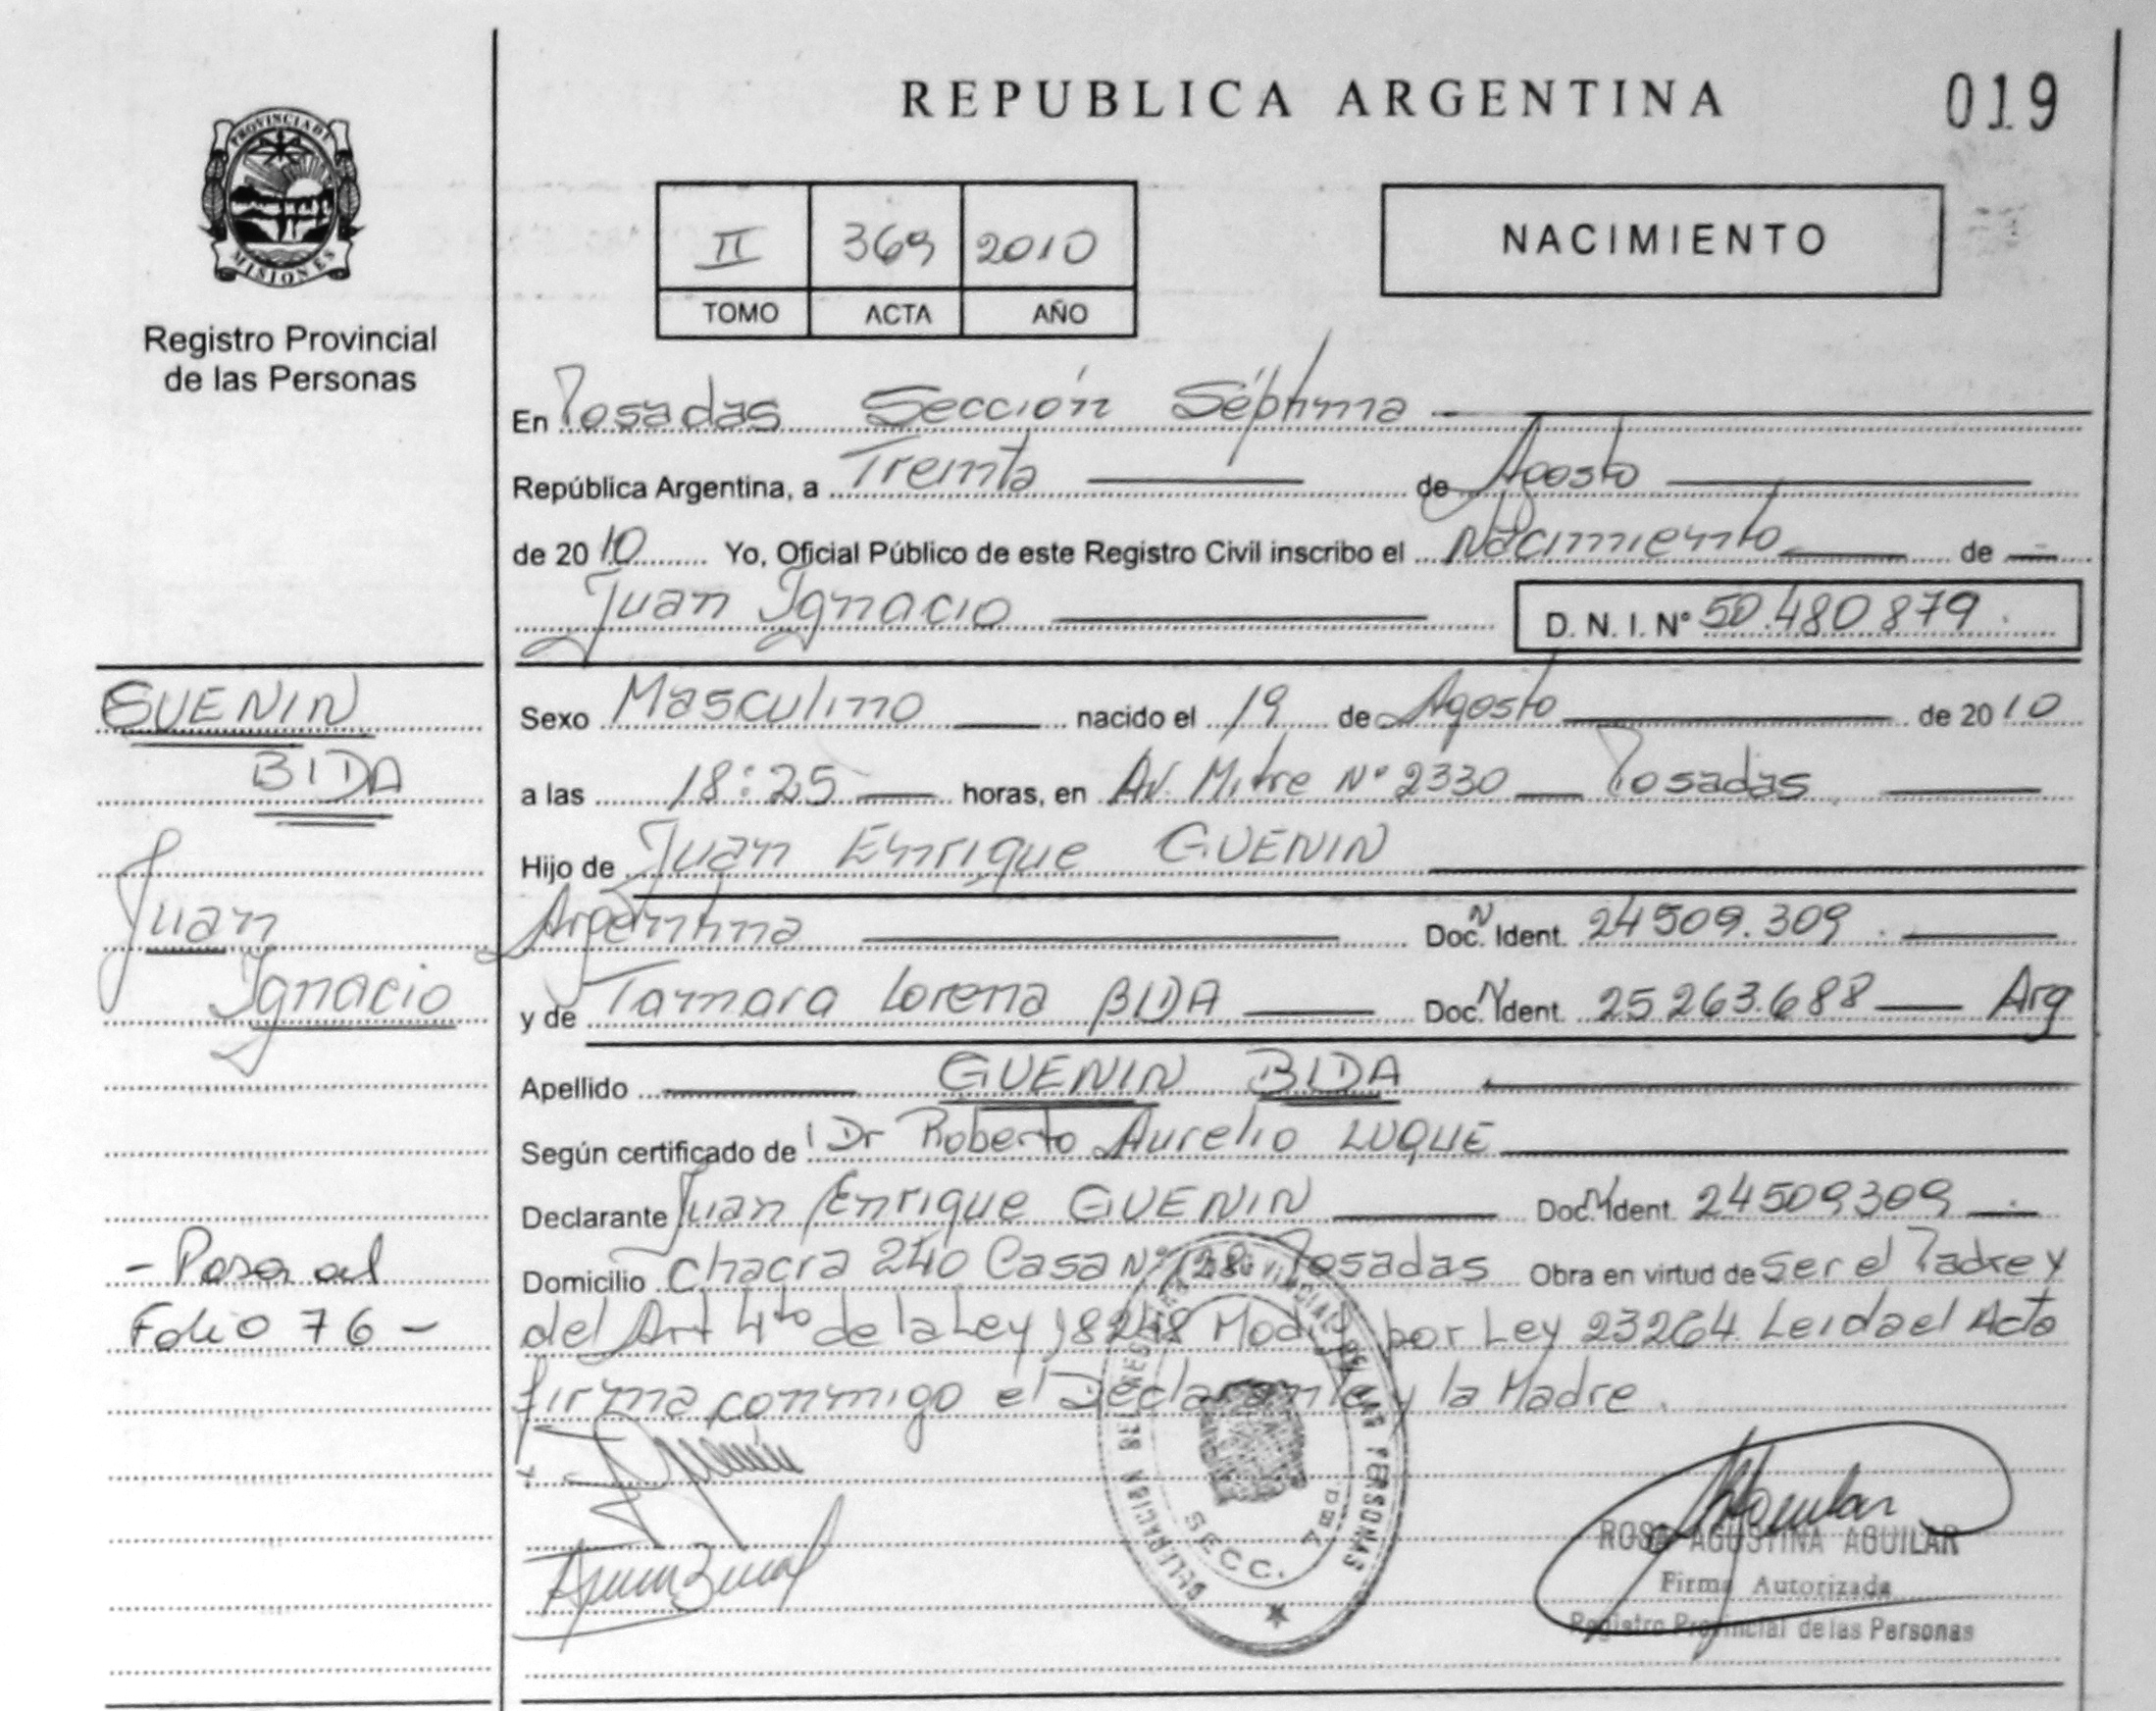 REPUBLICA ARGENTINA
019
PROVINCIA DE
MISIONES
Registro Provincial
de las Personas
II 369 2010
TOMO ACTA AÑO
NACIMIENTO
En Posadas Sección Séptima
República Argentina, a Treinta de Agosto
de 2010 Yo, Oficial Público de este Registro Civil inscribo el Nacimiento de
Juan Ignacio D. N. I. Nº 50.480879
GUENIN
BIDA
Juan
Ignacio
- Pasa al
Folio 76 -
Sexo Masculino nacido el 19 de Agosto de 2010
a las 18:25 horas, en Av. Mitre Nº 2330 Posadas
Hijo de Juan Enrique GUENIN
Argentina Doc. N Ident. 24509.309
y de Tamara Lorena BIDA Doc. N Ident. 25.263.688 Arg
Apellido GUENIN BIDA
Según certificado de Dr Roberto Aurelio LUQUE
Declarante Juan Enrique GUENIN Doc. N Ident. 24509309
Domicilio Chacra 240 Casa Nº 128 Posadas Obra en virtud de Ser el Padre y
del Art 4to de la Ley 18248 Modif por Ley 23264. Leida el Acta
firma conmigo el Declarante y la Madre.
DELEGACION DEL REGISTRO PROVINCIAL DE LAS PERSONAS
SECC. 7
ROSA AGUSTINA AGUILAR
Firma Autorizada
Registro Provincial de las Personas